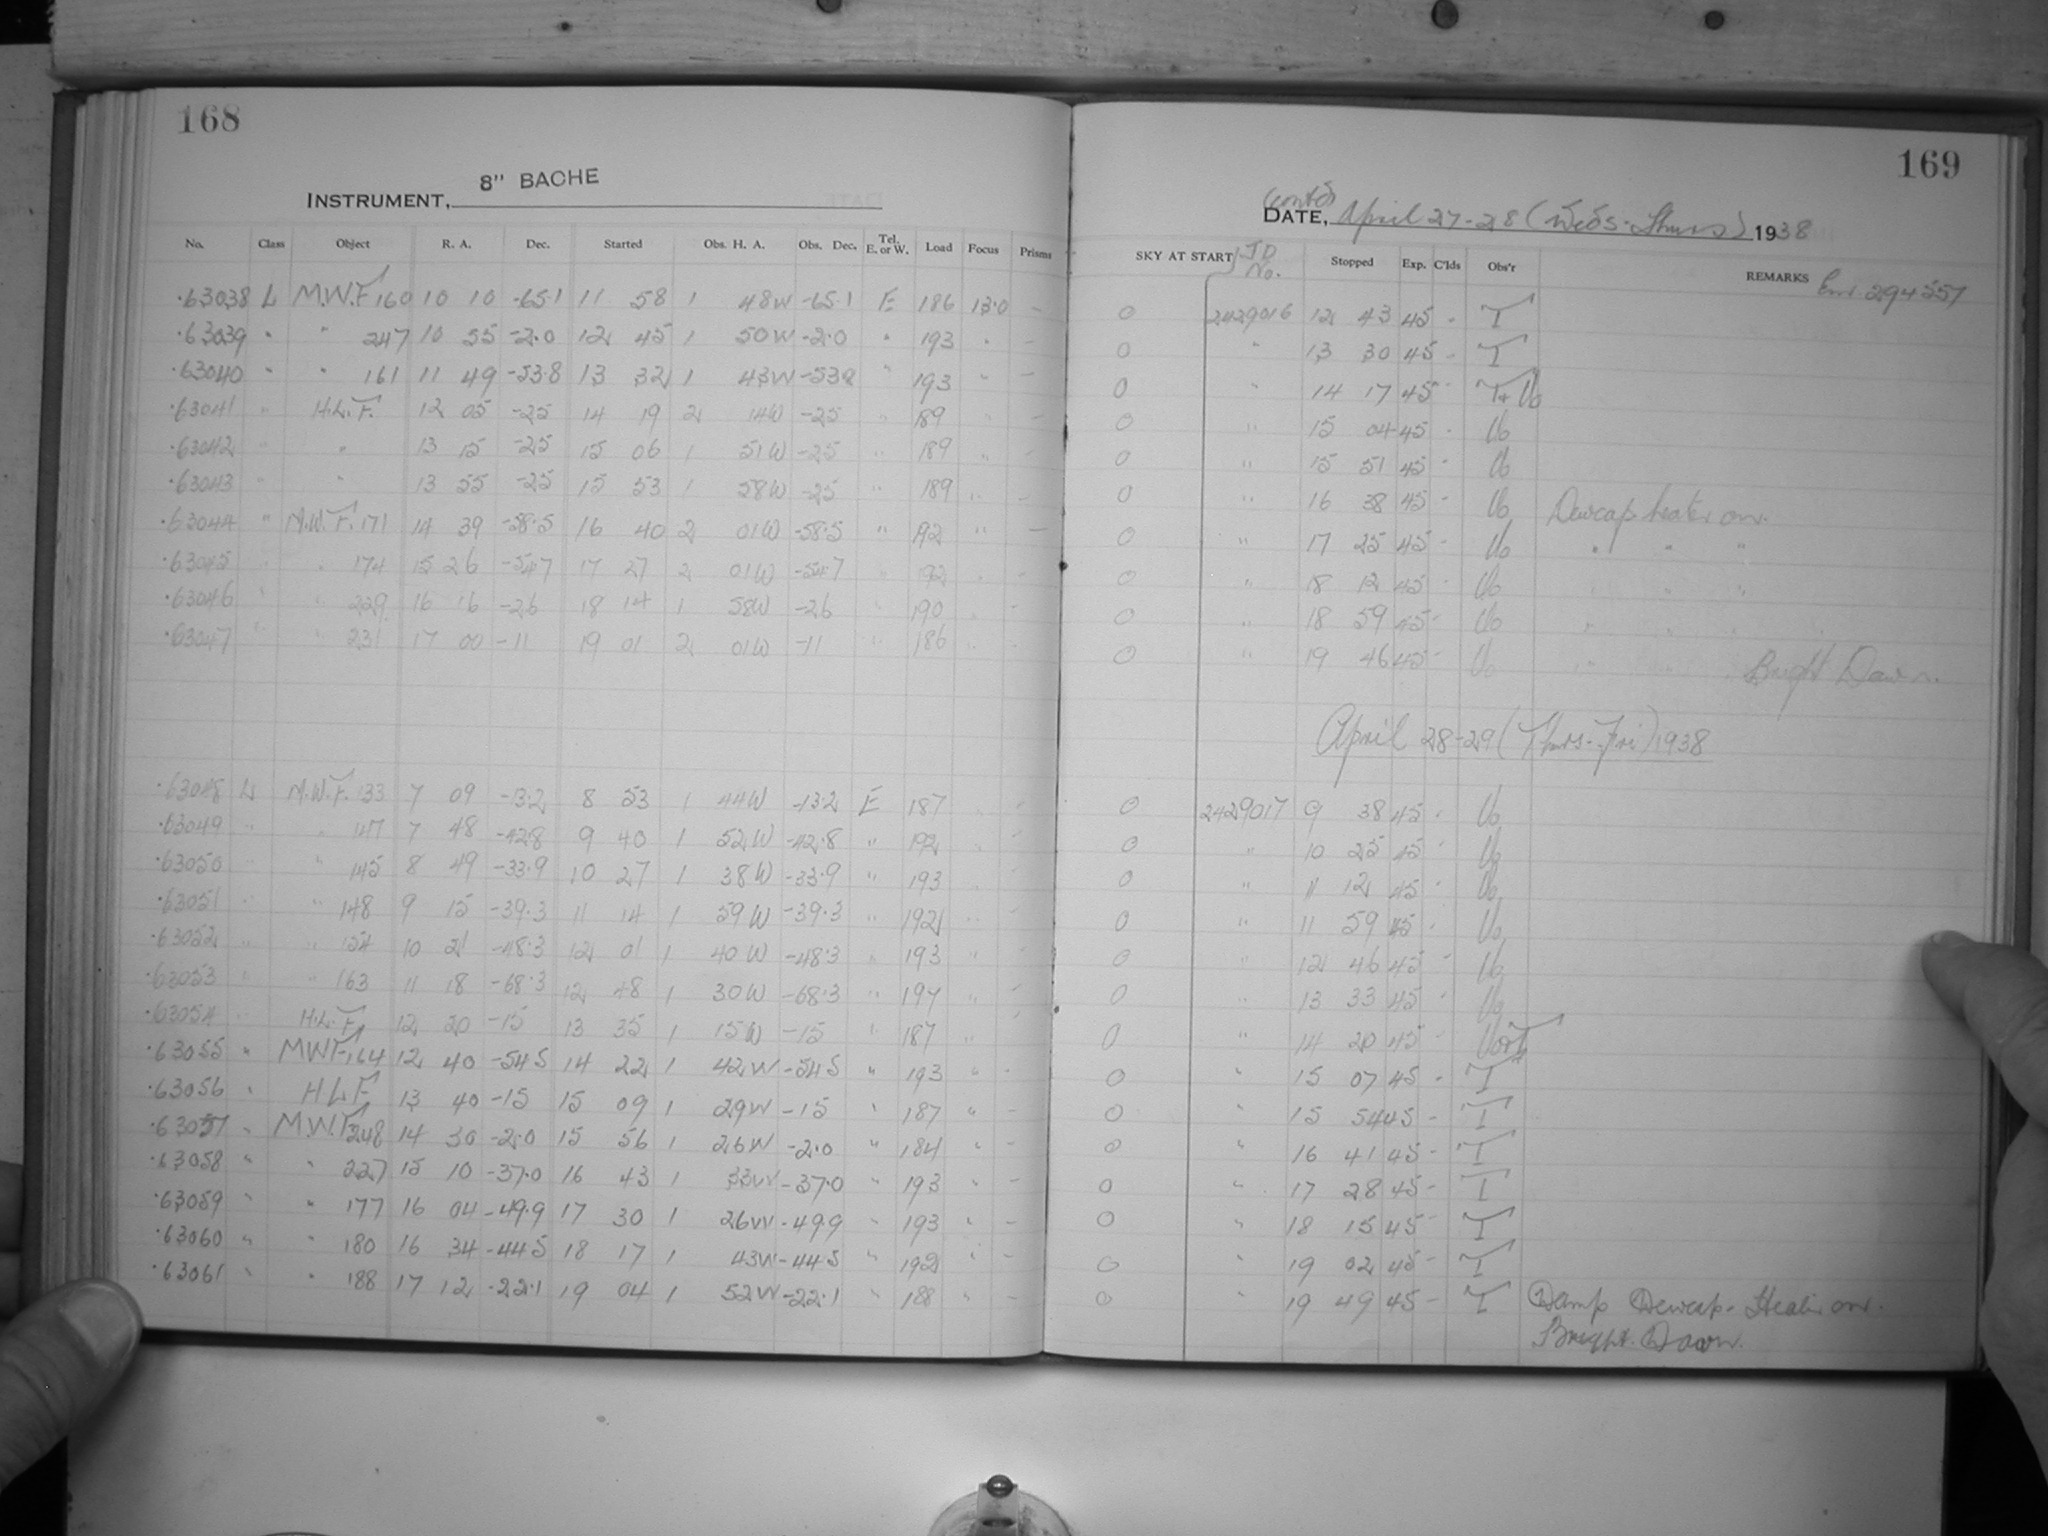 168
8" BACHE
INSTRUMENT,
No. Class Object R. A. Dec. Started Obs. H. A. Obs. Dec. Tel. E. or W. Load Focus Prisms
.63038 L M.W.F. 160 10 10 -65.1 11 58 1 48W -65.1 E 186 13.0 -
.63039 " " 247 10 55 -2.0 12 45 1 50W -2.0 " 193 " -
.63040 " " 161 11 49 -53.8 13 32 1 43W -53.8 " 193 " -
.63041 " H.L.F. 12 05 -25 14 19 2 14W -25 " 189 " -
.63042 " " 13 15 -25 15 06 1 51W -25 " 189 " -
.63043 " " 13 55 -25 15 53 1 58W -25 " 189 " -
.63044 " M.W.F. 171 14 39 -58.5 16 40 2 01W -58.5 " 192 " -
.63045 " " 174 15 26 -54.7 17 27 2 01W -54.7 " 192 " -
.63046 " " 229 16 16 -26 18 14 1 58W -26 " 190 " -
.63047 " " 231 17 00 -11 19 01 2 01W -11 " 186 " -
.63048 L M.W.F. 133 7 09 -13.2 8 53 1 44W -13.2 E 187 " "
.63049 " " 147 7 48 -42.8 9 40 1 52W -42.8 " 192 " "
.63050 " " 145 8 49 -33.9 10 27 1 38W -33.9 " 193 " "
.63051 " " 148 9 15 -39.3 11 14 1 59W -39.3 " 192 " "
.63052 " " 154 10 21 -48.3 12 01 1 40W -48.3 " 193 " "
.63053 " " 163 11 18 -68.3 12 48 1 30W -68.3 " 194 " "
.63054 " H.L.F. 12 20 -15 13 35 1 15W -15 " 187 " "
.63055 " MWF 164 12 40 -54.5 14 22 1 42W -54.5 " 193 " -
.63056 " H L F 13 40 -15 15 09 1 29W -15 " 187 " -
.63057 " M.W.F. 248 14 30 -2.0 15 56 1 26W -2.0 " 184 " -
.63058 " " 227 15 10 -37.0 16 43 1 33W -37.0 " 193 " -
.63059 " " 177 16 04 -49.9 17 30 1 26W -49.9 " 193 " -
.63060 " " 180 16 34 -44.5 18 17 1 43W -44.5 " 192 " -
.63061 " " 188 17 12 -22.1 19 04 1 52W -22.1 " 188 " -
169
(contd)
DATE, April 27-28 (Weds-Thurs) 1938
SKY AT START JD No. Stopped Exp. C'lds Obs'r REMARKS
0 2429016 12 43 45 - T
0 " 13 30 45 - T
0 " 14 17 45 - T + Uo
0 " 15 04 45 - Uo
0 " 15 51 45 - Uo
0 " 16 38 45 - Uo Dewcap heater on.
0 " 17 25 45 - Uo " " "
0 " 18 12 45 - Uo " " "
0 " 18 59 45 - Uo " " "
0 " 19 46 45 - Uo " " " Bright Dawn.
April 28-29 (Thurs-Fri) 1938
0 2429017 9 38 45 - Uo
0 " 10 25 45 - Uo
0 " 11 12 45 - Uo
0 " 11 59 45 - Uo
0 " 12 46 45 - Uo
0 " 13 33 45 - Uo
0 " 14 20 45 - Uo+T
0 " 15 07 45 - T
0 " 15 54 45 - T
0 " 16 41 45 - T
0 " 17 28 45 - T
0 " 18 15 45 - T
0 " 19 02 45 - T
0 " 19 49 45 - T Damp Dewcap-Heater on.
Bright Dawn.